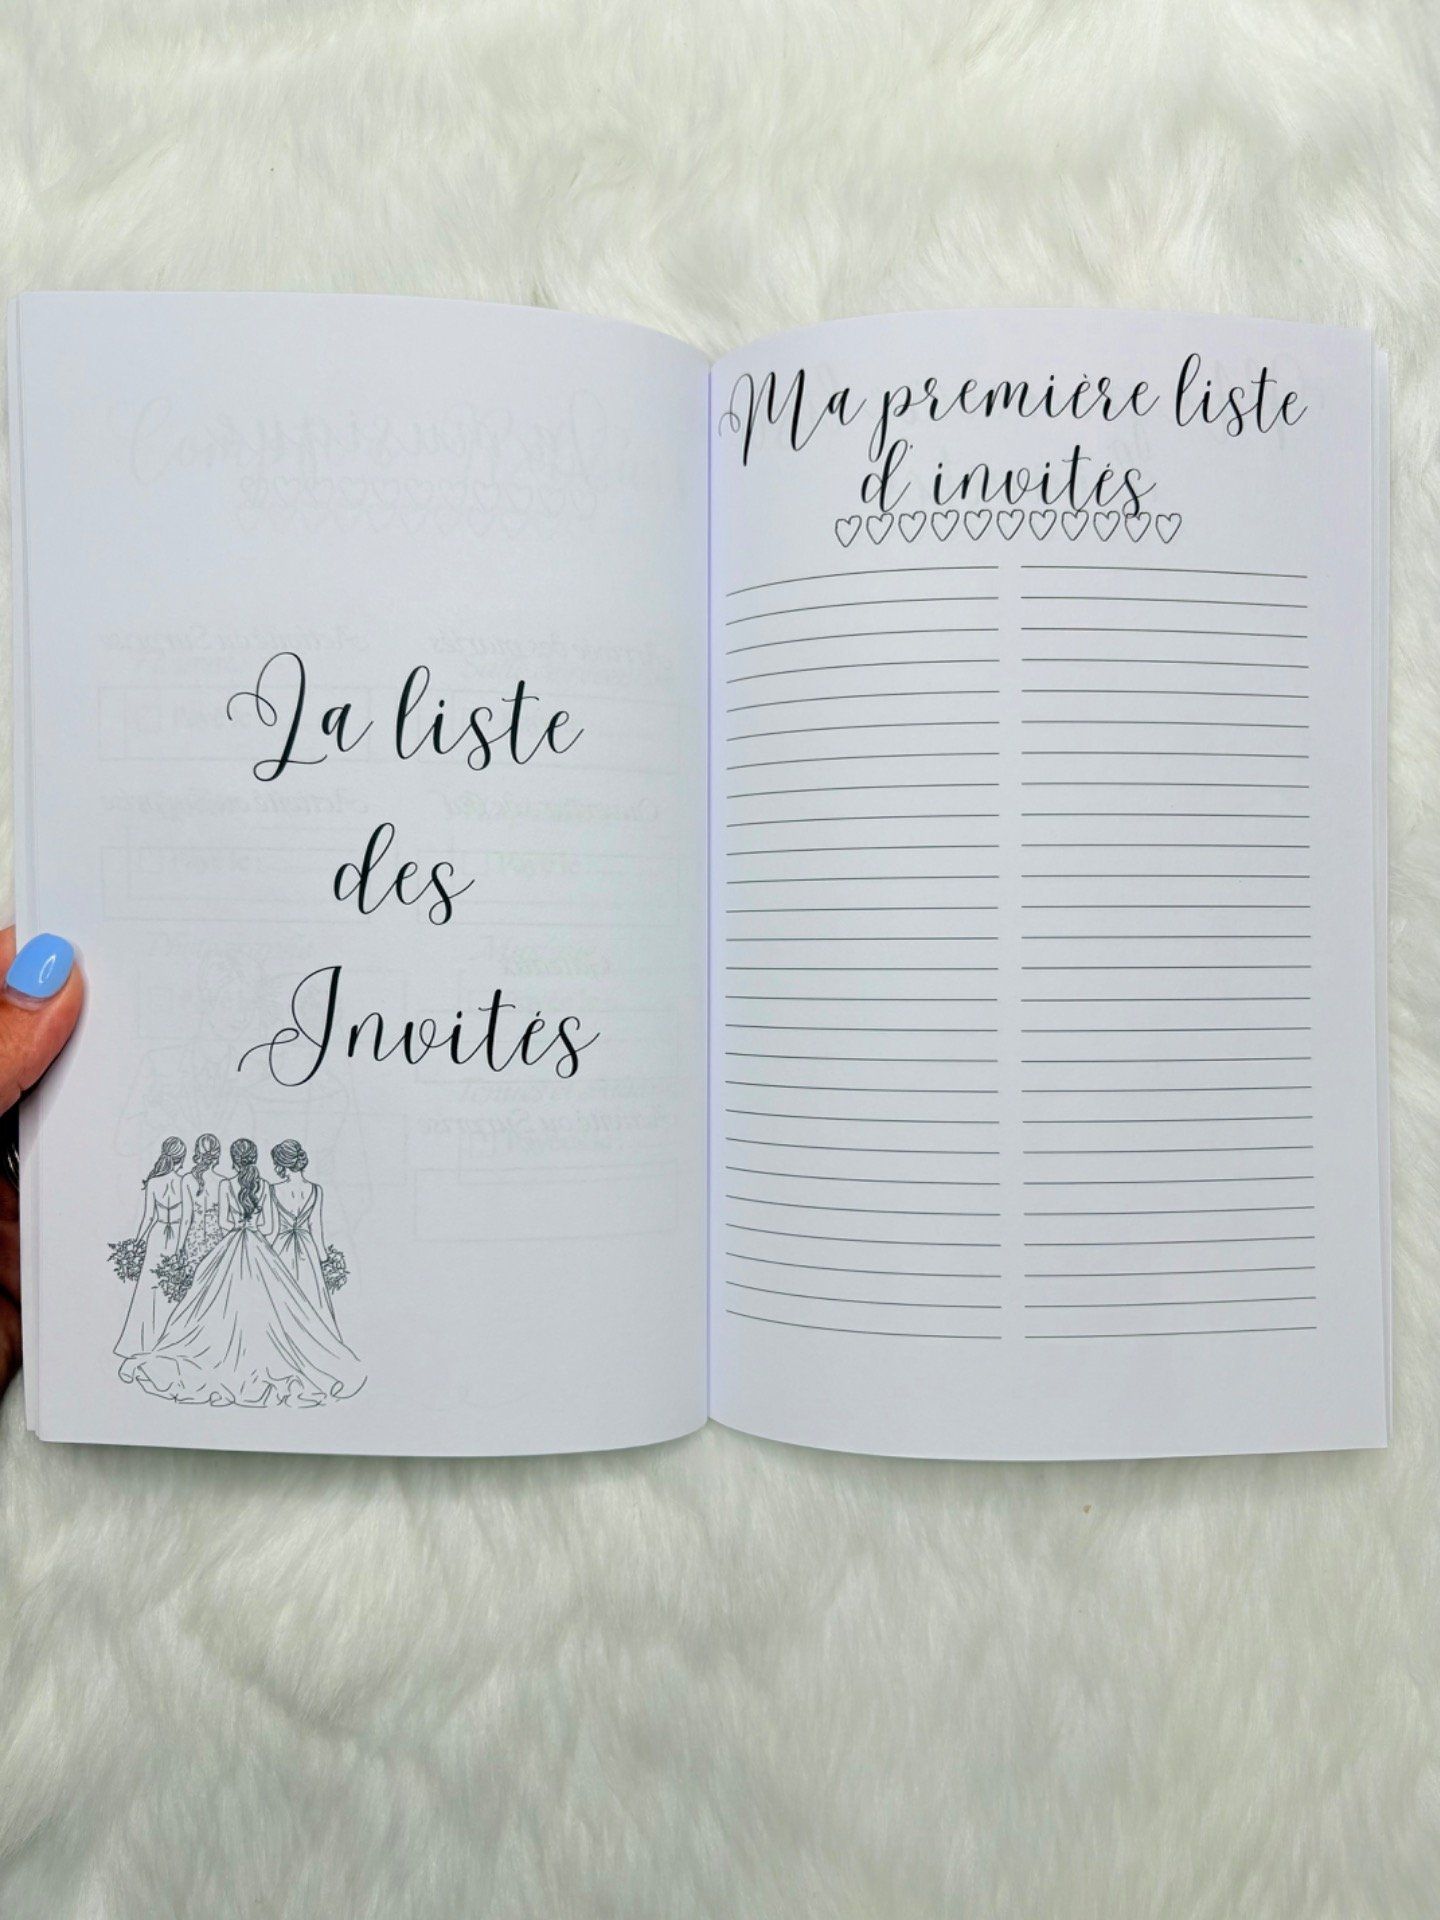 La liste
des
Invités
Ma première liste
d'invités